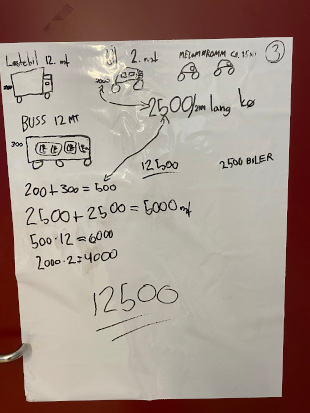 Lastebil 12. mt
Bil 2. mt
MELLOMROMM CA. 
3
2500/2m lang kø
BUSS 12 MT
300
12500
2500 BILER
200 + 300 = 500
2500 + 2500 = 5000 mt
500 · 12 = 6000
2000 · 2 = 4000
12500